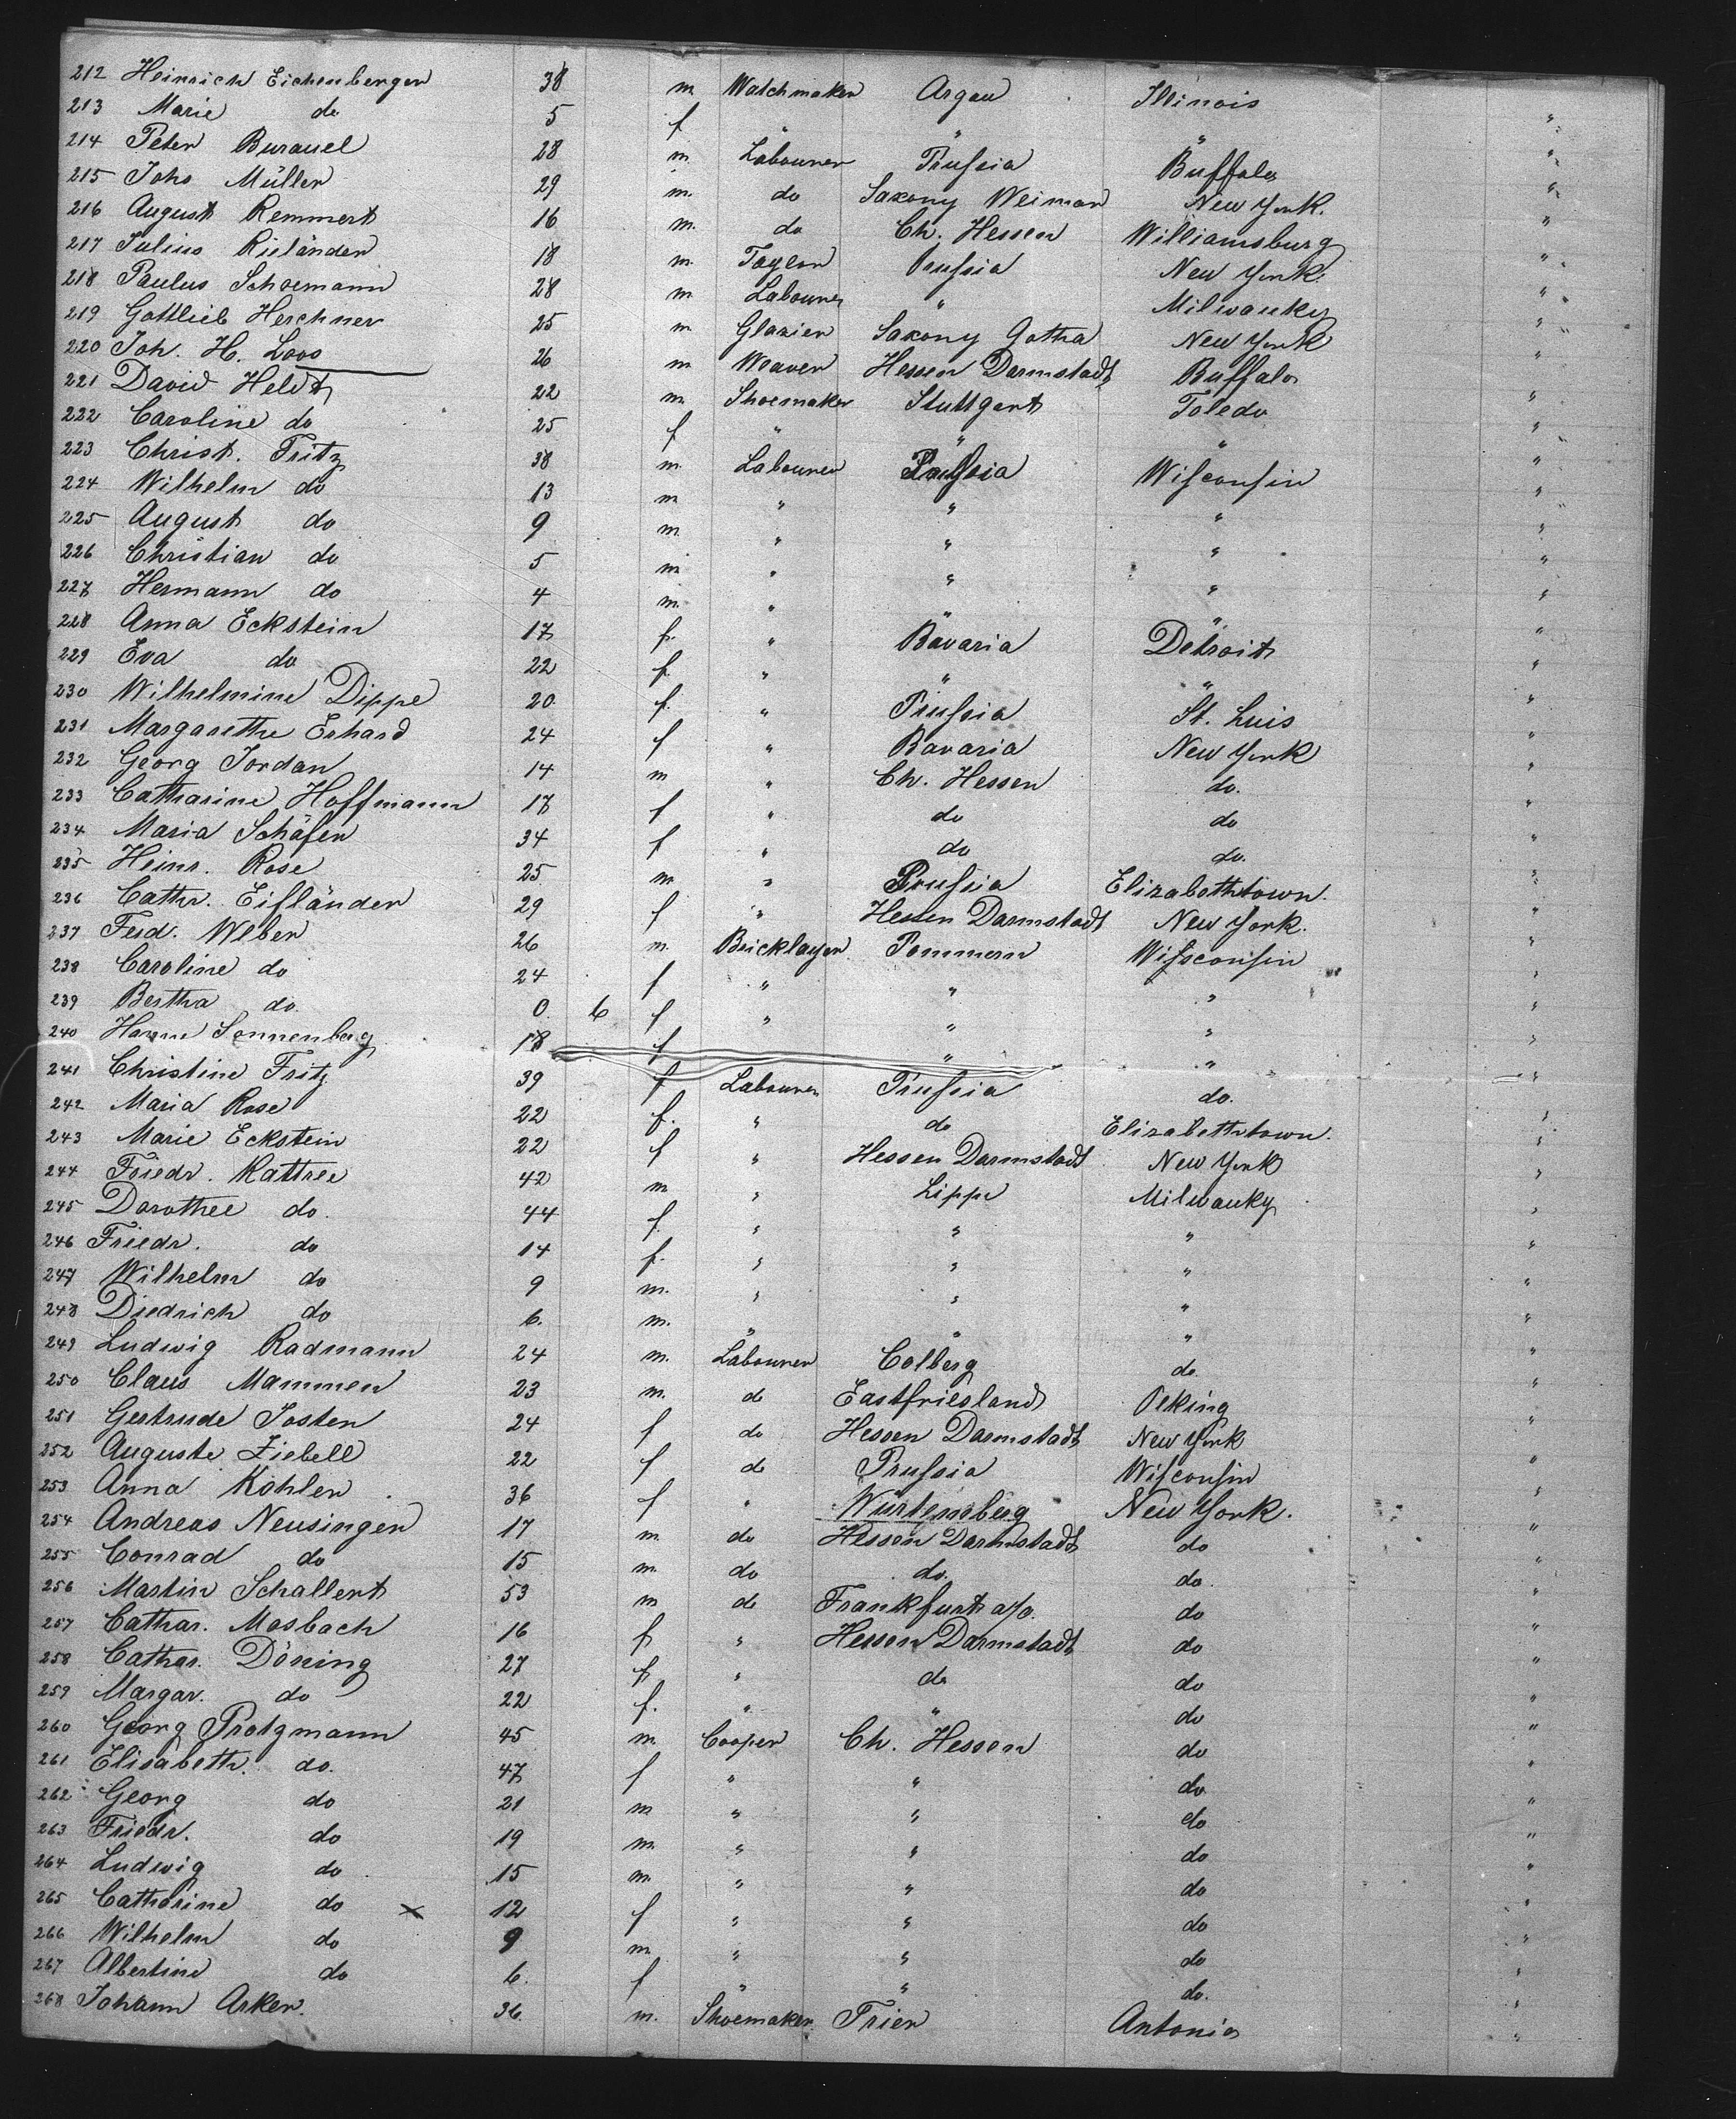 212 Heinrich Eichenberger 38 m Watchmaker Argau Illinois "
213 Marie do 5 f " " " "
214 Peter Burauel 28 m Labourer Prussia Buffalo "
215 Johs Müller 29 m. do Saxony Weimar New York. "
216 August Remmert 16 m. do Ch. Hessen Williamsburg "
217 Julius Rieländer 18 m. Taylor Prussia New York. "
218 Paulus Schoemann 28 m Labourer " Milwauky "
219 Gottlieb Herchner 25 m Glazier Saxony Gotha New York "
220 Joh. H. Loos 26 m Weaver Hessen Darmstadt Buffalo "
221 David Heldt 22 m. Shoemaker Stuttgart Toledo "
222 Caroline do 25 f " " " "
223 Christ. Fritz 38 m. Labourer Prussia Wisconsin "
224 Wilhelm do 13 m " " " "
225 August do 9 m " " " "
226 Christian do 5 m " " " "
227 Hermann do 4 m. " " " "
228 Anna Eckstein 17 f. " Bavaria Detroit "
229 Eva do 22 f. " " " "
230 Wilhelmine Dippe 20 f. " Prussia St. Luis "
231 Margarethe Erhard 24 f " Bavaria New York "
232 Georg Jordan 14 m " Ch. Hessen do. "
233 Catharine Hoffmann 17 f " do do "
234 Maria Schäfer 34 f " do do. "
235 Heinr. Rose 25 m " Prussia Elizabethtown. "
236 Cathr. Eisländer 29 f " Hessen Darmstadt New York. "
237 Ferd. Weber 26 m. Bricklayer Pommern Wisconsin "
238 Caroline do 24 f " " " "
239 Bertha do. 0. 6 f " " " "
240 Hanne Sonnenberg 18 f " " "
241 Christine Fritz 39 f Labourer Prussia do. "
242 Maria Rose 22 f. " do Elizabethtown. "
243 Marie Eckstein 22 f " Hessen Darmstadt New York "
244 Friedr. Kattree 42 m " Lippe Milwauky "
245 Dorothee do. 44 f. " " " "
246 Friedr. do 14 f. " " " "
247 Wilhelm do 9 m. " " " "
248 Diedrich do 6. m. " " " "
249 Ludwig Radmann 24 m. Labourer Colberg do. "
250 Claus Mammen 23 m. do Eastfriesland Peking "
251 Gertrude Josten 24 f do Hessen Darmstadt New York "
252 Auguste Ziebell 22 f do Prussia Wisconsin "
253 Anna Köhler 36 f " Würtemberg New York. "
254 Andreas Neusinger 17 m. do Hessen Darmstadt do "
255 Conrad do 15 m. do do. do. "
256 Martin Schallert 53 m do Frankfurt a/o. do "
257 Cathar. Mosbach 16 f " Hessen Darmstadt do "
258 Cathar. Döring 27 f " do do "
259 Margar. do 22 f. " " do "
260 Georg Protzmann 45 m. Cooper Ch. Hessen do "
261 Elisabeth. do. 47 f " " do "
262 Georg do 21 m " " do "
263 Friedr. do 19 m. " " do "
264 Ludwig do 15 m. " " do "
265 Catharine do x 12 f " " do "
266 Wilhelm do 9 m. " " do "
267 Albertine do 6. f " " do. "
268 Johann Arker. 36. m. Shoemaker Trier Antonia "